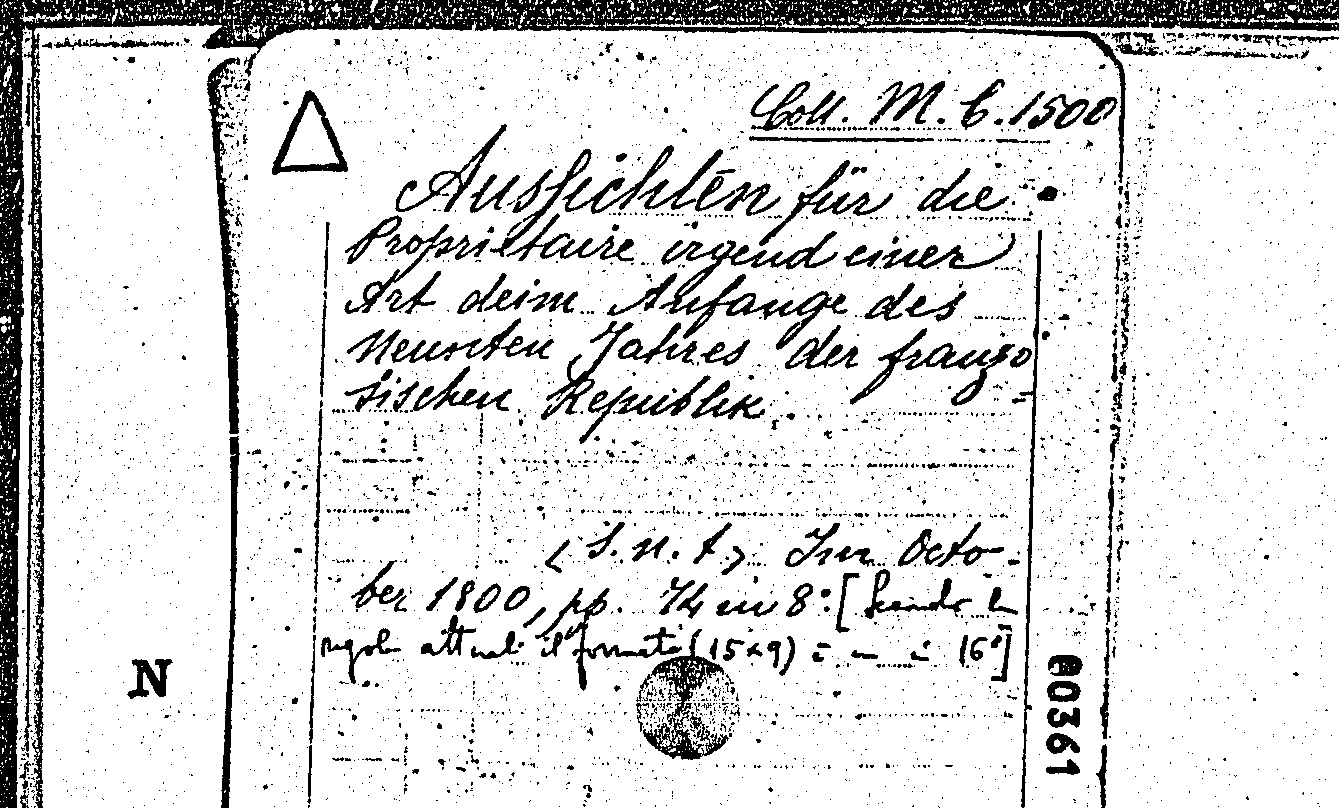 Coll. M. C. 1500
Aussichten für die
Proprietaire irgend einer
Art deim Anfange des
Neunten Jahres der franzö
sischen Republik.
<S. n. t.> Im Octo-
ber 1800, pp. 74 in 8º. [Secondo le
regole attuali il formato (15×9) è in 16º]
N
00361